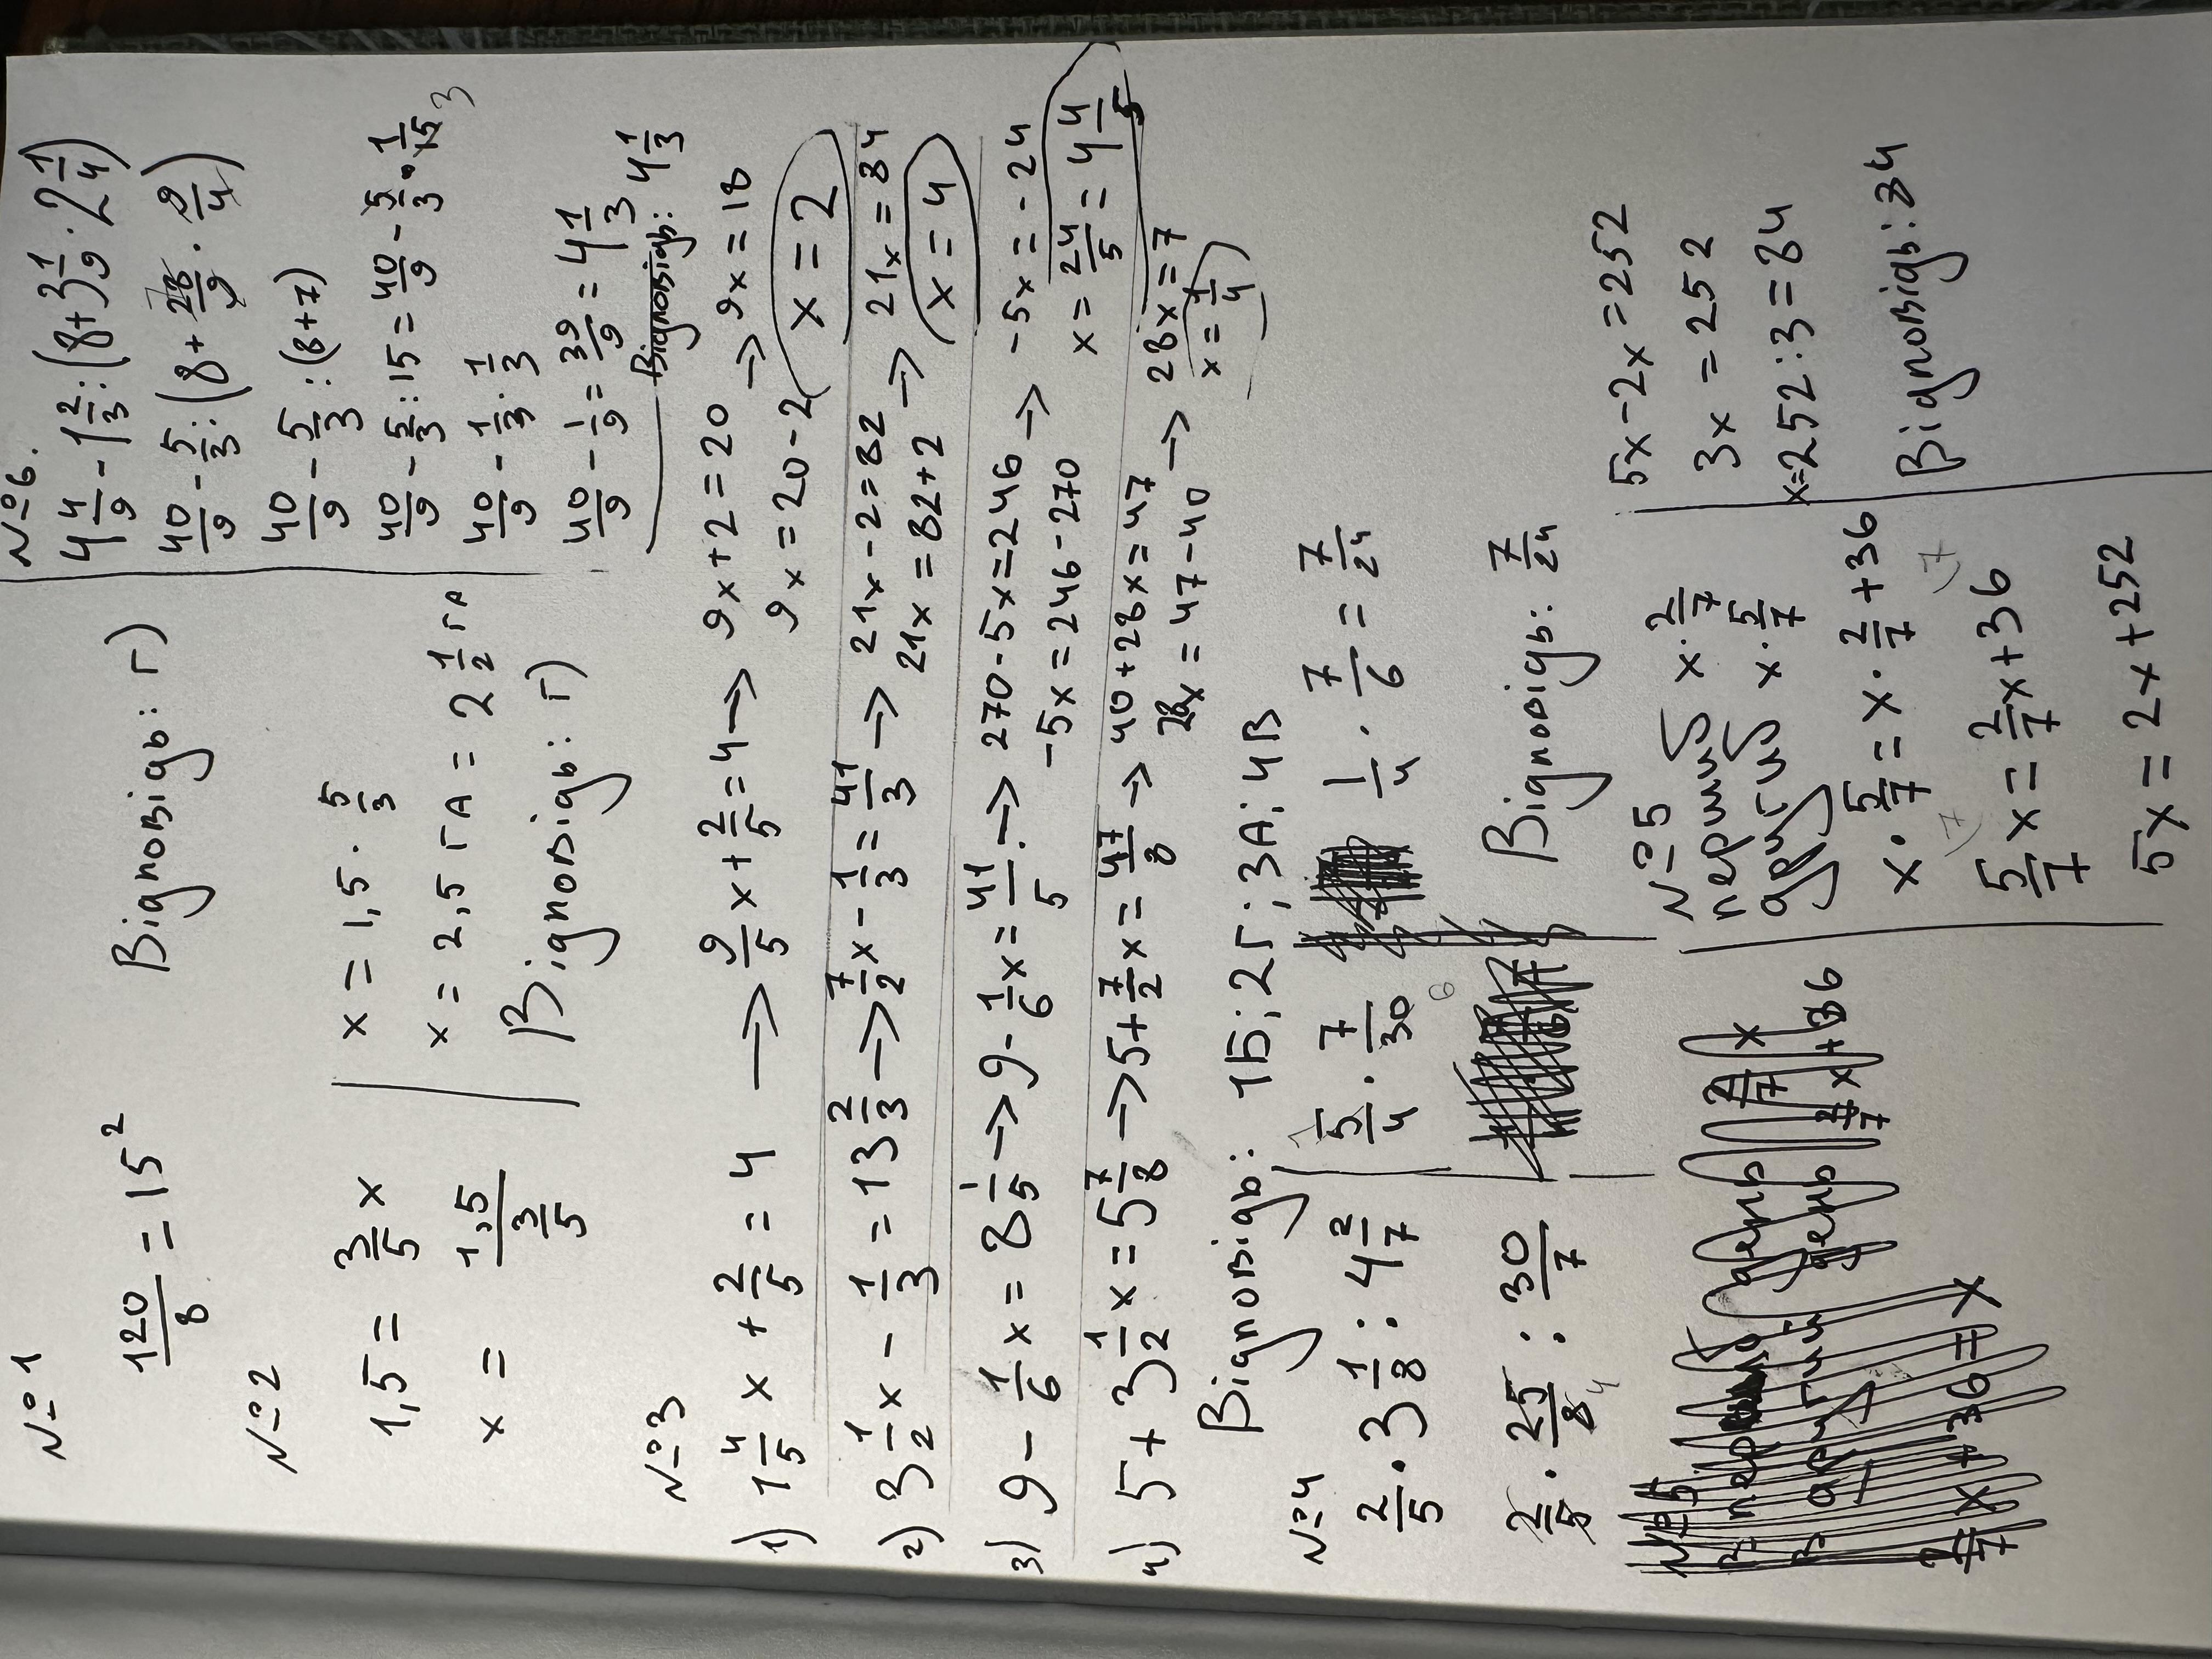 №1
120/8 = 15²
Відповідь: Г)
№2
1,5 = 3/5 x
x = 1,5 / 3/5
x = 1,5 · 5/3
x = 2,5 га = 2 1/2 га
Відповідь: Г)
№3
1) 1 4/5 x + 2/5 = 4 → 9/5 x + 2/5 = 4 → 9x + 2 = 20 → 9x = 18
9x = 20 - 2
x = 2
2) 3 1/2 x - 1/3 = 13 2/3 → 7/2 x - 1/3 = 41/3 → 21x - 2 = 82 → 21x = 84
21x = 82 + 2
x = 4
3) 9 - 1/6 x = 8 1/5 → 9 - 1/6 x = 41/5 → 270 - 5x = 246 → -5x = -24
-5x = 246 - 270
x = 24/5 = 4 4/5
4) 5 + 3 1/2 x = 5 7/8 → 5 + 7/2 x = 47/8 → 40 + 28x = 47 → 28x = 7
28x = 47 - 40
x = 1/4
Відповідь: 1Б; 2Г; 3А; 4В
№4
2/5 · 3 1/8 : 4 2/7
2/5 · 25/8 4 : 30/7
5/4 · 7/30 6
1/4 · 7/6 = 7/24
Відповідь: 7/24
№5
перший x · 2/7
другий x · 5/7
x · 5/7 = x · 2/7 + 36
5/7 x = 2/7 x + 36
5x = 2x + 252
5x - 2x = 252
3x = 252
x = 252 : 3 = 84
Відповідь: 84
№6.
4 4/9 - 1 2/3 : (8 + 3 1/9 · 2 1/4)
40/9 - 5/3 : (8 + 28/9 · 9/4)
40/9 - 5/3 : (8 + 7)
40/9 - 5/3 : 15 = 40/9 - 5/3 · 1/15 3
40/9 - 1/3 · 1/3
40/9 - 1/9 = 39/9 = 4 1/3
Відповідь: 4 1/3